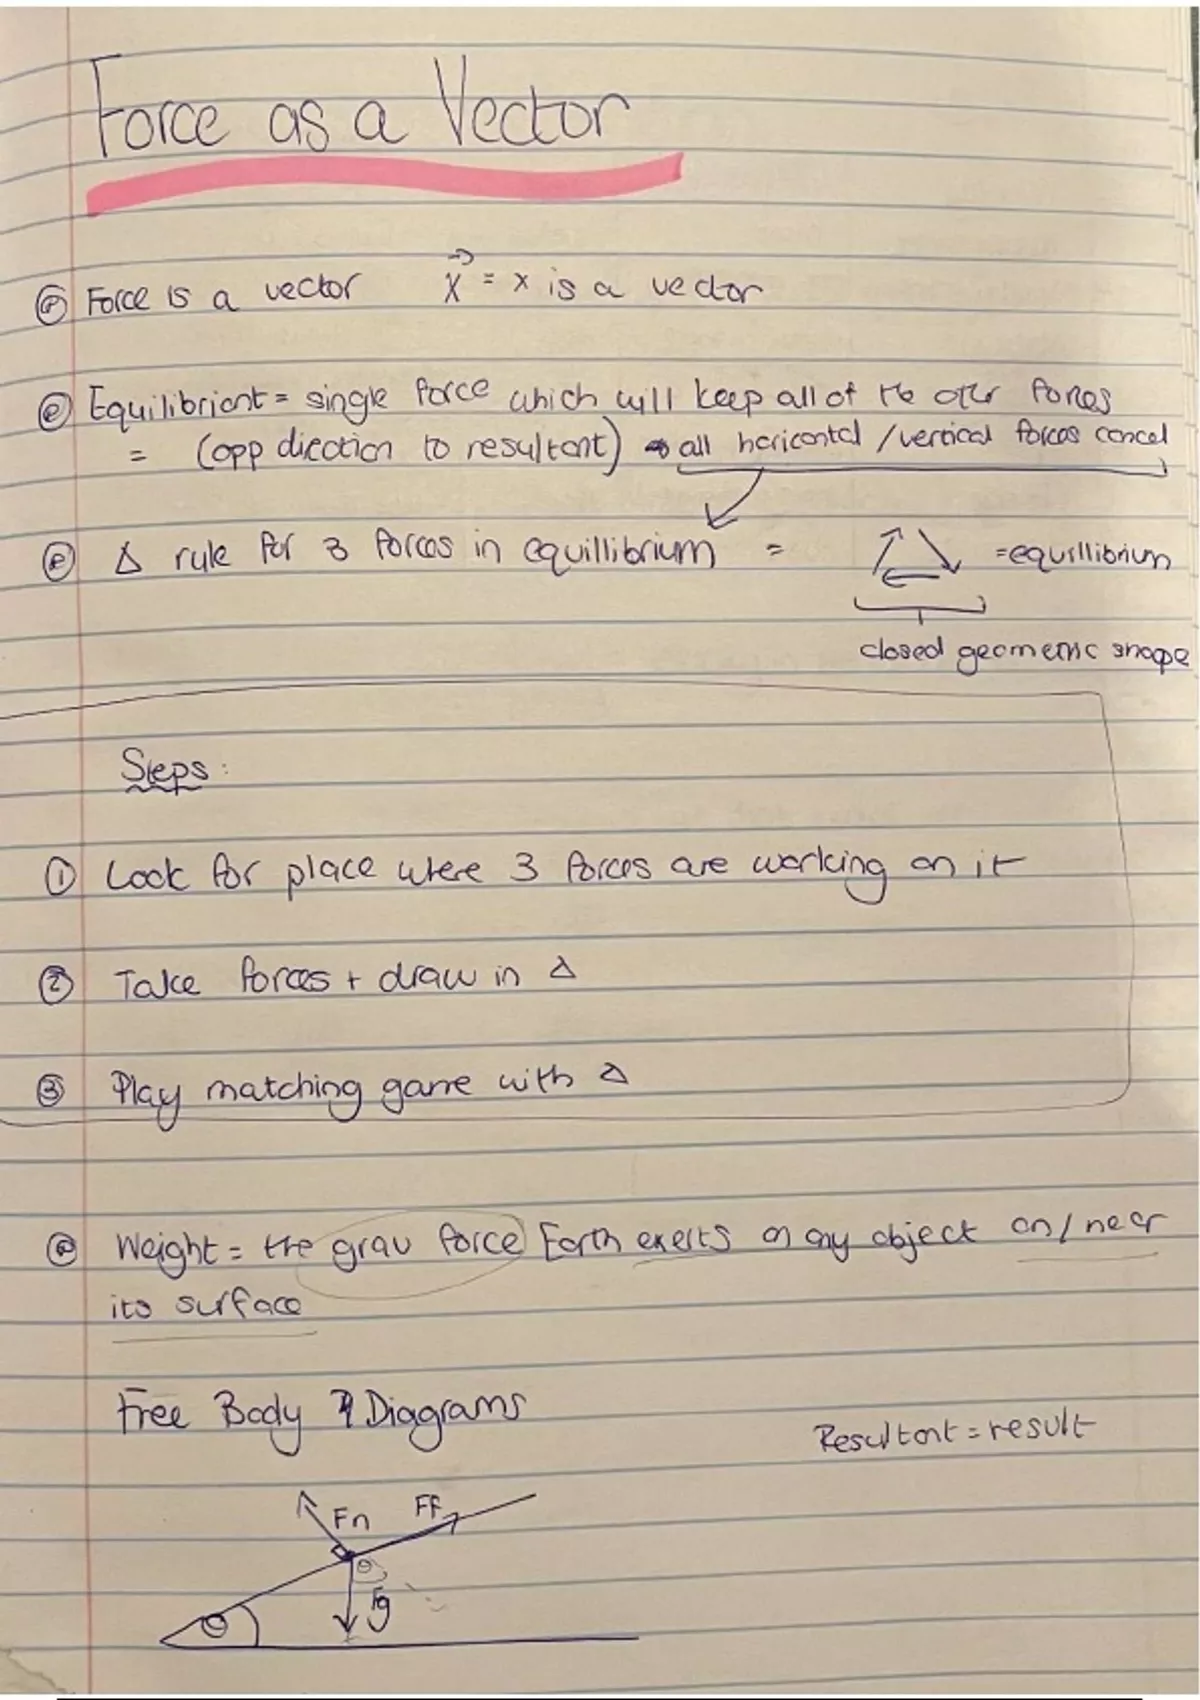 Force as a Vector
Ⓟ Force is a vector x⃗ = x is a vector
Ⓔ Equilibriant = single force which will keep all of the other forces
= (opp direction to resultant) → all horicontal / vertical forces cancel
Ⓟ Δ rule for 3 forces in equillibrium = = equillibrium
closed geometric shape
Steps:
① Look for place where 3 forces are working on it
② Take forces + draw in Δ
③ Play matching game with Δ
Ⓟ Weight = the grav force Earth exerts on any object on / near
its surface
Free Body Diagrams
Resultant = result
Fn Ff
θ
θ Fg